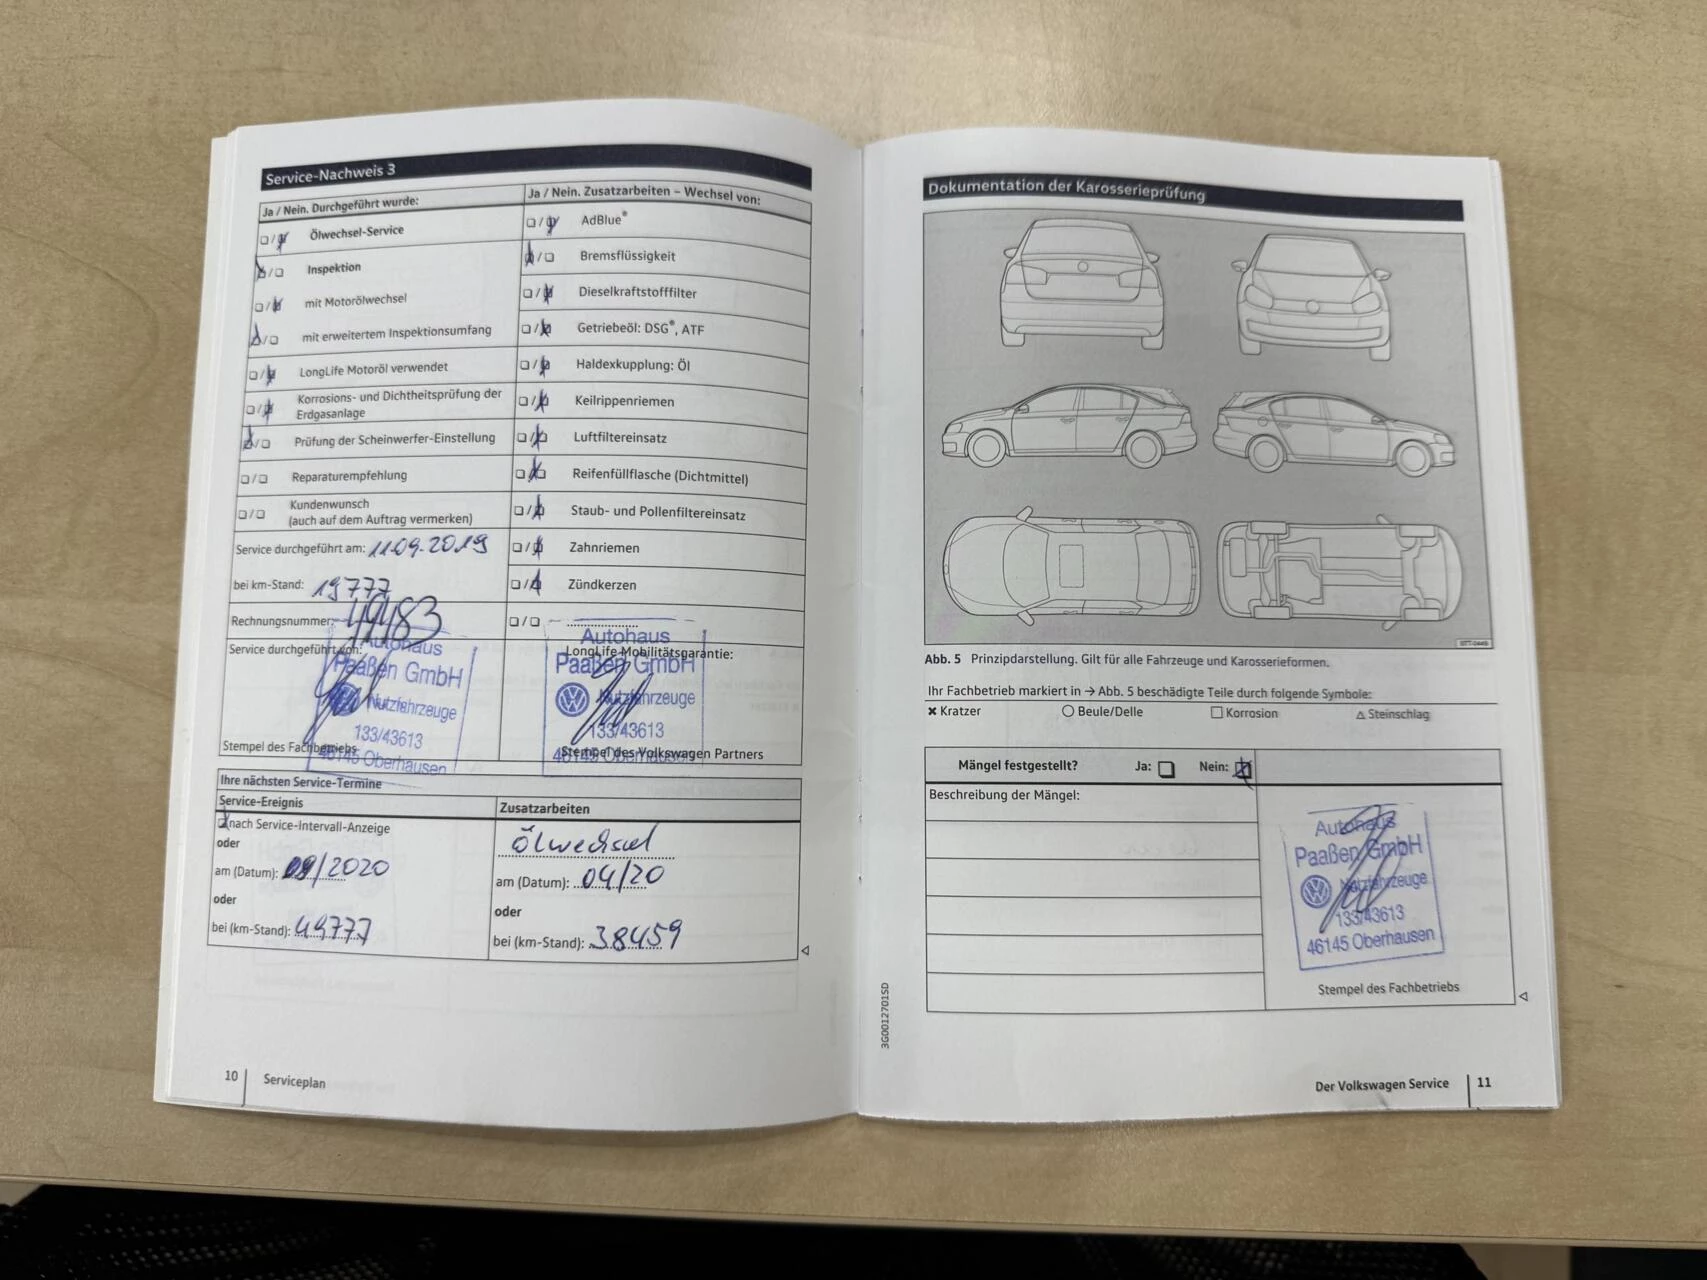 Service-Nachweis 3
Ja / Nein. Durchgeführt wurde:
Ölwechsel-Service
Inspektion
mit Motorölwechsel
mit erweitertem Inspektionsumfang
LongLife Motoröl verwendet
Korrosions- und Dichtheitsprüfung der
Erdgasanlage
Prüfung der Scheinwerfer-Einstellung
Reparaturempfehlung
Kundenwunsch
(auch auf dem Auftrag vermerken)
Service durchgeführt am: 11.09.2019
bei km-Stand: 19777
Rechnungsnummer:
Service durchgeführt von:
Autohaus
Paaßen GmbH
Nutzfahrzeuge
133/43613
46145 Oberhausen
Stempel des Fachbetriebs
Ja / Nein. Zusatzarbeiten – Wechsel von:
AdBlue®
Bremsflüssigkeit
Dieselkraftstofffilter
Getriebeöl: DSG®, ATF
Haldexkupplung: Öl
Keilrippenriemen
Luftfiltereinsatz
Reifenfüllflasche (Dichtmittel)
Staub- und Pollenfiltereinsatz
Zahnriemen
Zündkerzen
LongLife-Mobilitätsgarantie:
Autohaus
Paaßen GmbH
Nutzfahrzeuge
133/43613
46145 Oberhausen
Stempel des Volkswagen Partners
Ihre nächsten Service-Termine
Service-Ereignis
nach Service-Intervall-Anzeige
oder
am (Datum): 09/2020
oder
bei (km-Stand): 49777
Zusatzarbeiten
Ölwechsel
am (Datum): 04/20
oder
bei (km-Stand): 38459
10 Serviceplan
Dokumentation der Karosserieprüfung
Abb. 5 Prinzipdarstellung. Gilt für alle Fahrzeuge und Karosserieformen.
Ihr Fachbetrieb markiert in → Abb. 5 beschädigte Teile durch folgende Symbole:
Kratzer Beule/Delle Korrosion Steinschlag
Mängel festgestellt? Ja: Nein:
Beschreibung der Mängel:
Autohaus
Paaßen GmbH
Nutzfahrzeuge
133/43613
46145 Oberhausen
Stempel des Fachbetriebs
3G0012701SD
Der Volkswagen Service 11